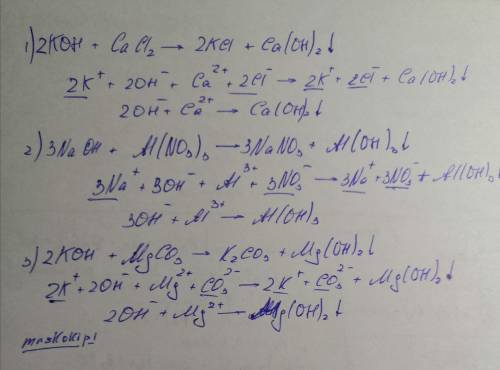 1) 2KOH + CaCl₂ → 2KCl + Ca(OH)₂↓
2K⁺ + 2OH⁻ + Ca²⁺ + 2Cl⁻ → 2K⁺ + 2Cl⁻ + Ca(OH)₂↓
2OH⁻ + Ca²⁺ → Ca(OH)₂↓
2) 3NaOH + Al(NO₃)₃ → 3NaNO₃ + Al(OH)₃↓
3Na⁺ + 3OH⁻ + Al³⁺ + 3NO₃⁻ → 3Na⁺ + 3NO₃⁻ + Al(OH)₃↓
3OH⁻ + Al³⁺ → Al(OH)₃
3) 2KOH + MgCO₃ → K₂CO₃ + Mg(OH)₂↓
2K⁺ + 2OH⁻ + Mg²⁺ + CO₃²⁻ → 2K⁺ + CO₃²⁻ + Mg(OH)₂↓
2OH⁻ + Mg²⁺ → Mg(OH)₂↓